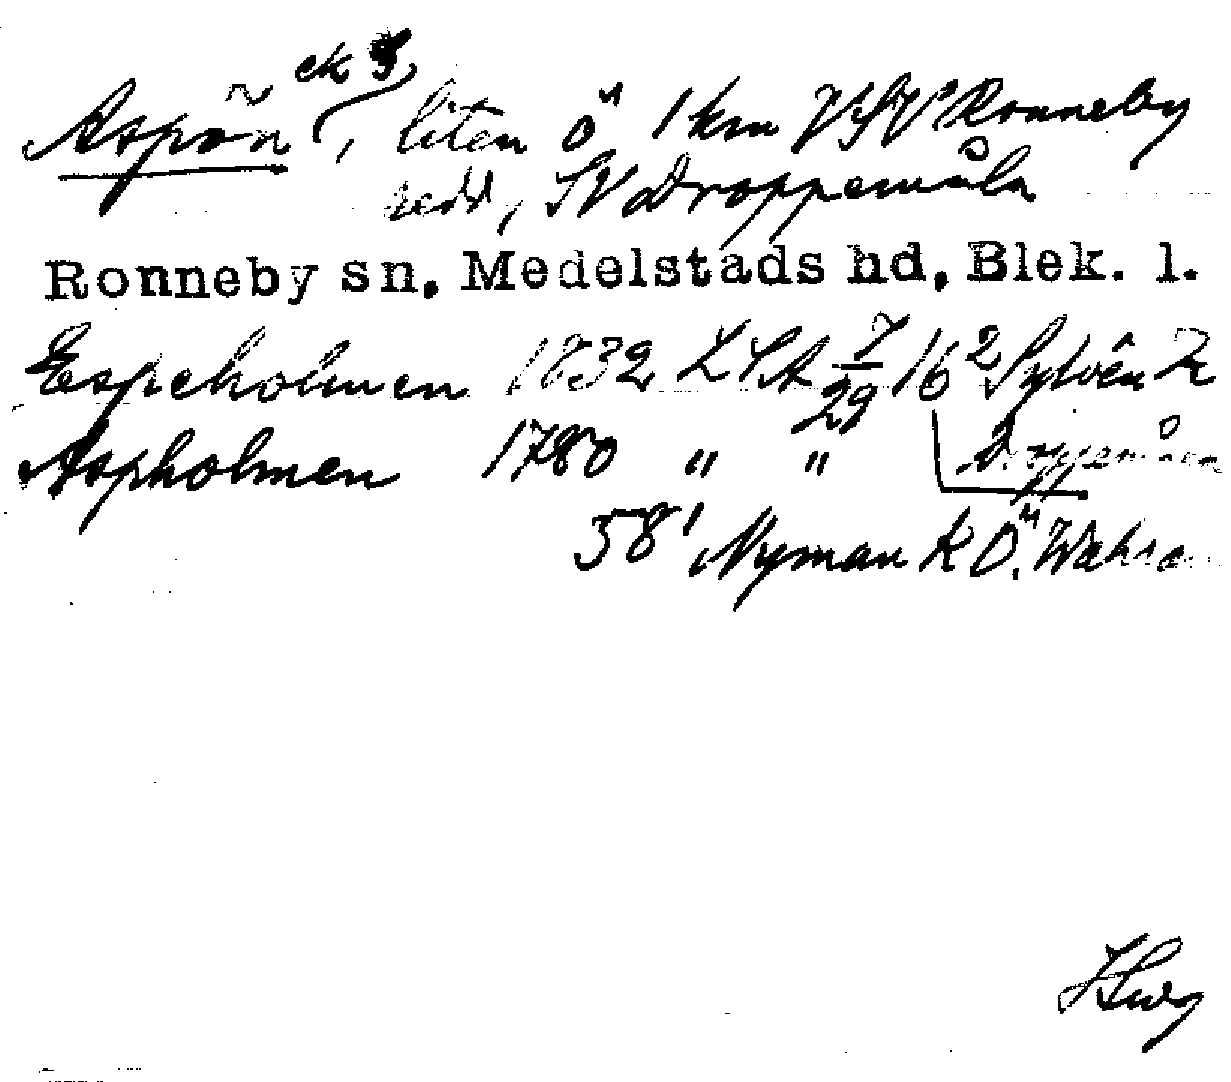 ek S
Aspön, liten ö 1 km VSV Ronneby
redd, SV Droppemåla
Ronneby sn, Medelstads hd, Blek. l.
Espeholmen 1832 LSA 7/29 16² Sylvén K
Aspholmen 1780 " " Droppemåla
58' Nyman K Ö.